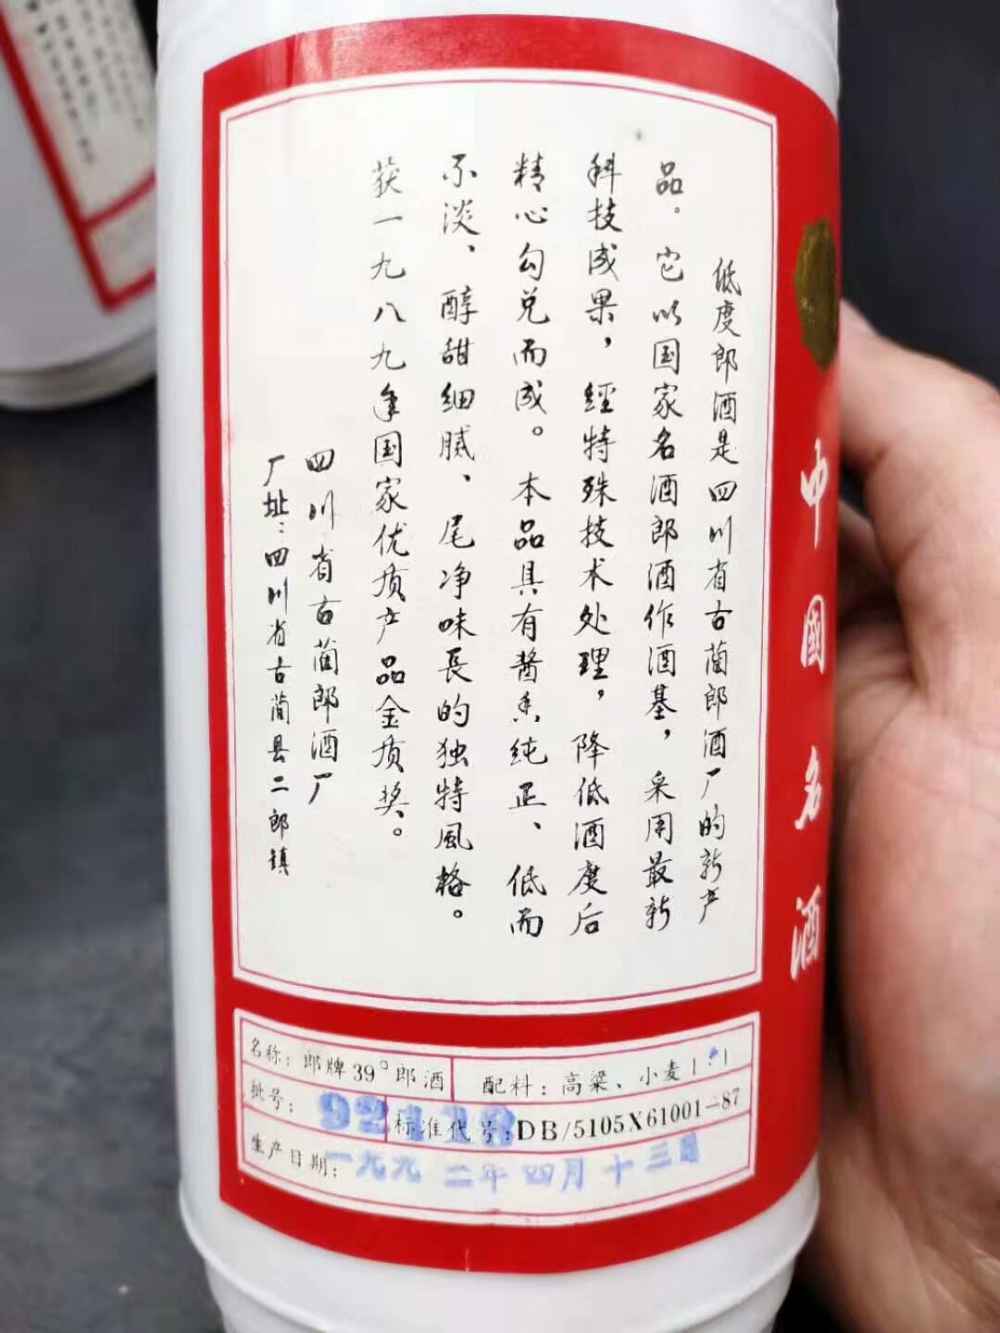 低度郎酒是四川省古蔺郎酒厂的新产
品。它以国家名酒郎酒作酒基，采用最新
科技成果，经特殊技术处理，降低酒度后
精心勾兑而成。本品具有酱香纯正、低而
不淡、醇甜细腻、尾净味長的独特風格。
获一九八九年国家优质产品金质奖。
四川省古蔺郎酒厂
厂址：四川省古蔺县二郎镇
中國名酒
名称：郎牌39°郎酒
配料：高粱、小麦1:1
批号：
标准代号:DB/5105X61001-87
生产日期：一九九二年四月十三日